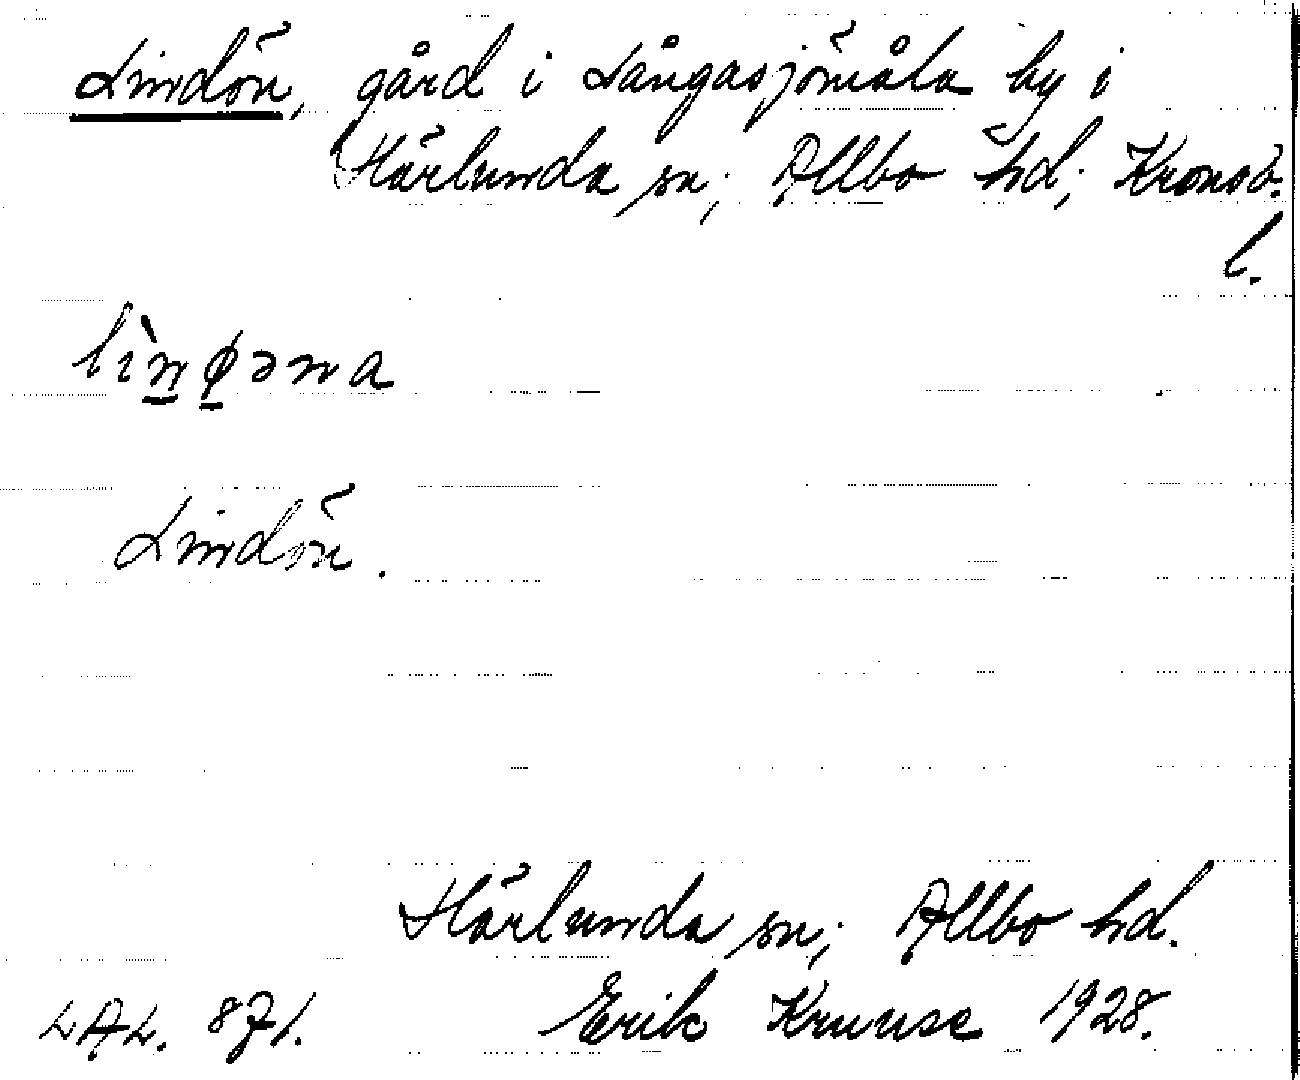 Lindön, gård i Långasjömåla by i
Härlunda sn; Allbo hd; Kronob.
l.
lìn̲ø̲əna
Lindön.
Härlunda sn; Allbo hd.
LAL. 871. Erik Kruuse 1928.